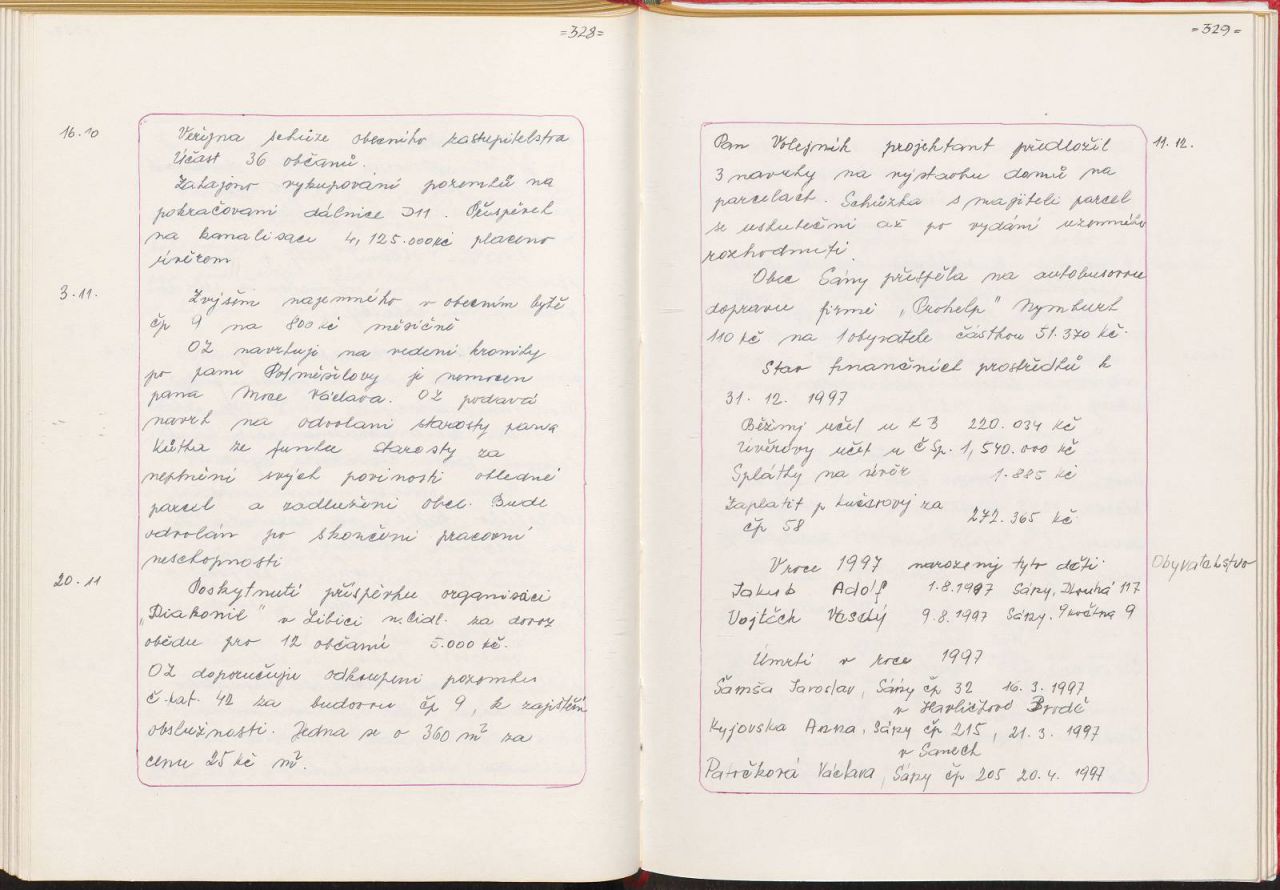 =328=
16.10
Veřejna schůze obecního zastupitelstva
Účast 36 občanů.
Zahájeno vykupování pozemků na
pokračovaní dálnice D11. Příspěvek
na kanalisaci 4,125.000 kč placeno
úvěrem
3.11.
Zvýšení najemného v obecním bytě
čp 9 na 800 kč měsíčně
OZ navrhuje na vedení kroniky
po paní Potměšilovy je nemocen
pana Moce Václava. OZ podavá
navrh na odvolaní starosty pana
Kůtka ze funkce starosty za
neplnění svých povinosti ohledně
parcel a zadlužení obce. Bude
odvolán po skončení pracovní
neschopnosti
20.11
Poskytnutí příspěvku organisaci
„Diakonie" v Libici n. Cidl. za dovoz
obědu pro 12 občanů 5.000 kč.
OZ doporučuje odkoupení pozemku
č. kat. 42 za budovou čp 9, k zajištění
obslužnosti. Jedna se o 360 m² za
cenu 25 kč m².
=329=
11.12.
Pan Volejník projektant předložil
3 navrhy na výstavbu domů na
parcelach. Schůzka s majiteli parcel
se uskuteční až po vydání uzemního
rozhodnutí.
Obec Sány přispěla na autobusovou
dopravu firmě „Orohelp" Nymburk
110 kč na 1 obyvatele částkou 51.370 kč.
Stav finančních prostředků k
31. 12. 1997
Běžný učet u KB 220.034 kč
Uvěrovy učet u Č Sp. 1,540.000 kč
Splátky na úvěr 1.885 kč
Zaplatit p Kučerový za
čp 58 272.365 kč
Obyvatelstvo
V roce 1997 narozeny tyto děti:
Jakub Adolf 1.8.1997 Sány, Dlouhá 117
Vojtěch Veselý 9.8.1997 Sány, 9 května 9
Úmrti v roce 1997
Šamša Jaroslav, Sány čp 32 16.3.1997
v Havlíčkově Brodě
Kyjovska Anna, Sány čp 215, 21.3. 1997
v Sanech
Patočková Václava, Sány čp 205 20.4. 1997